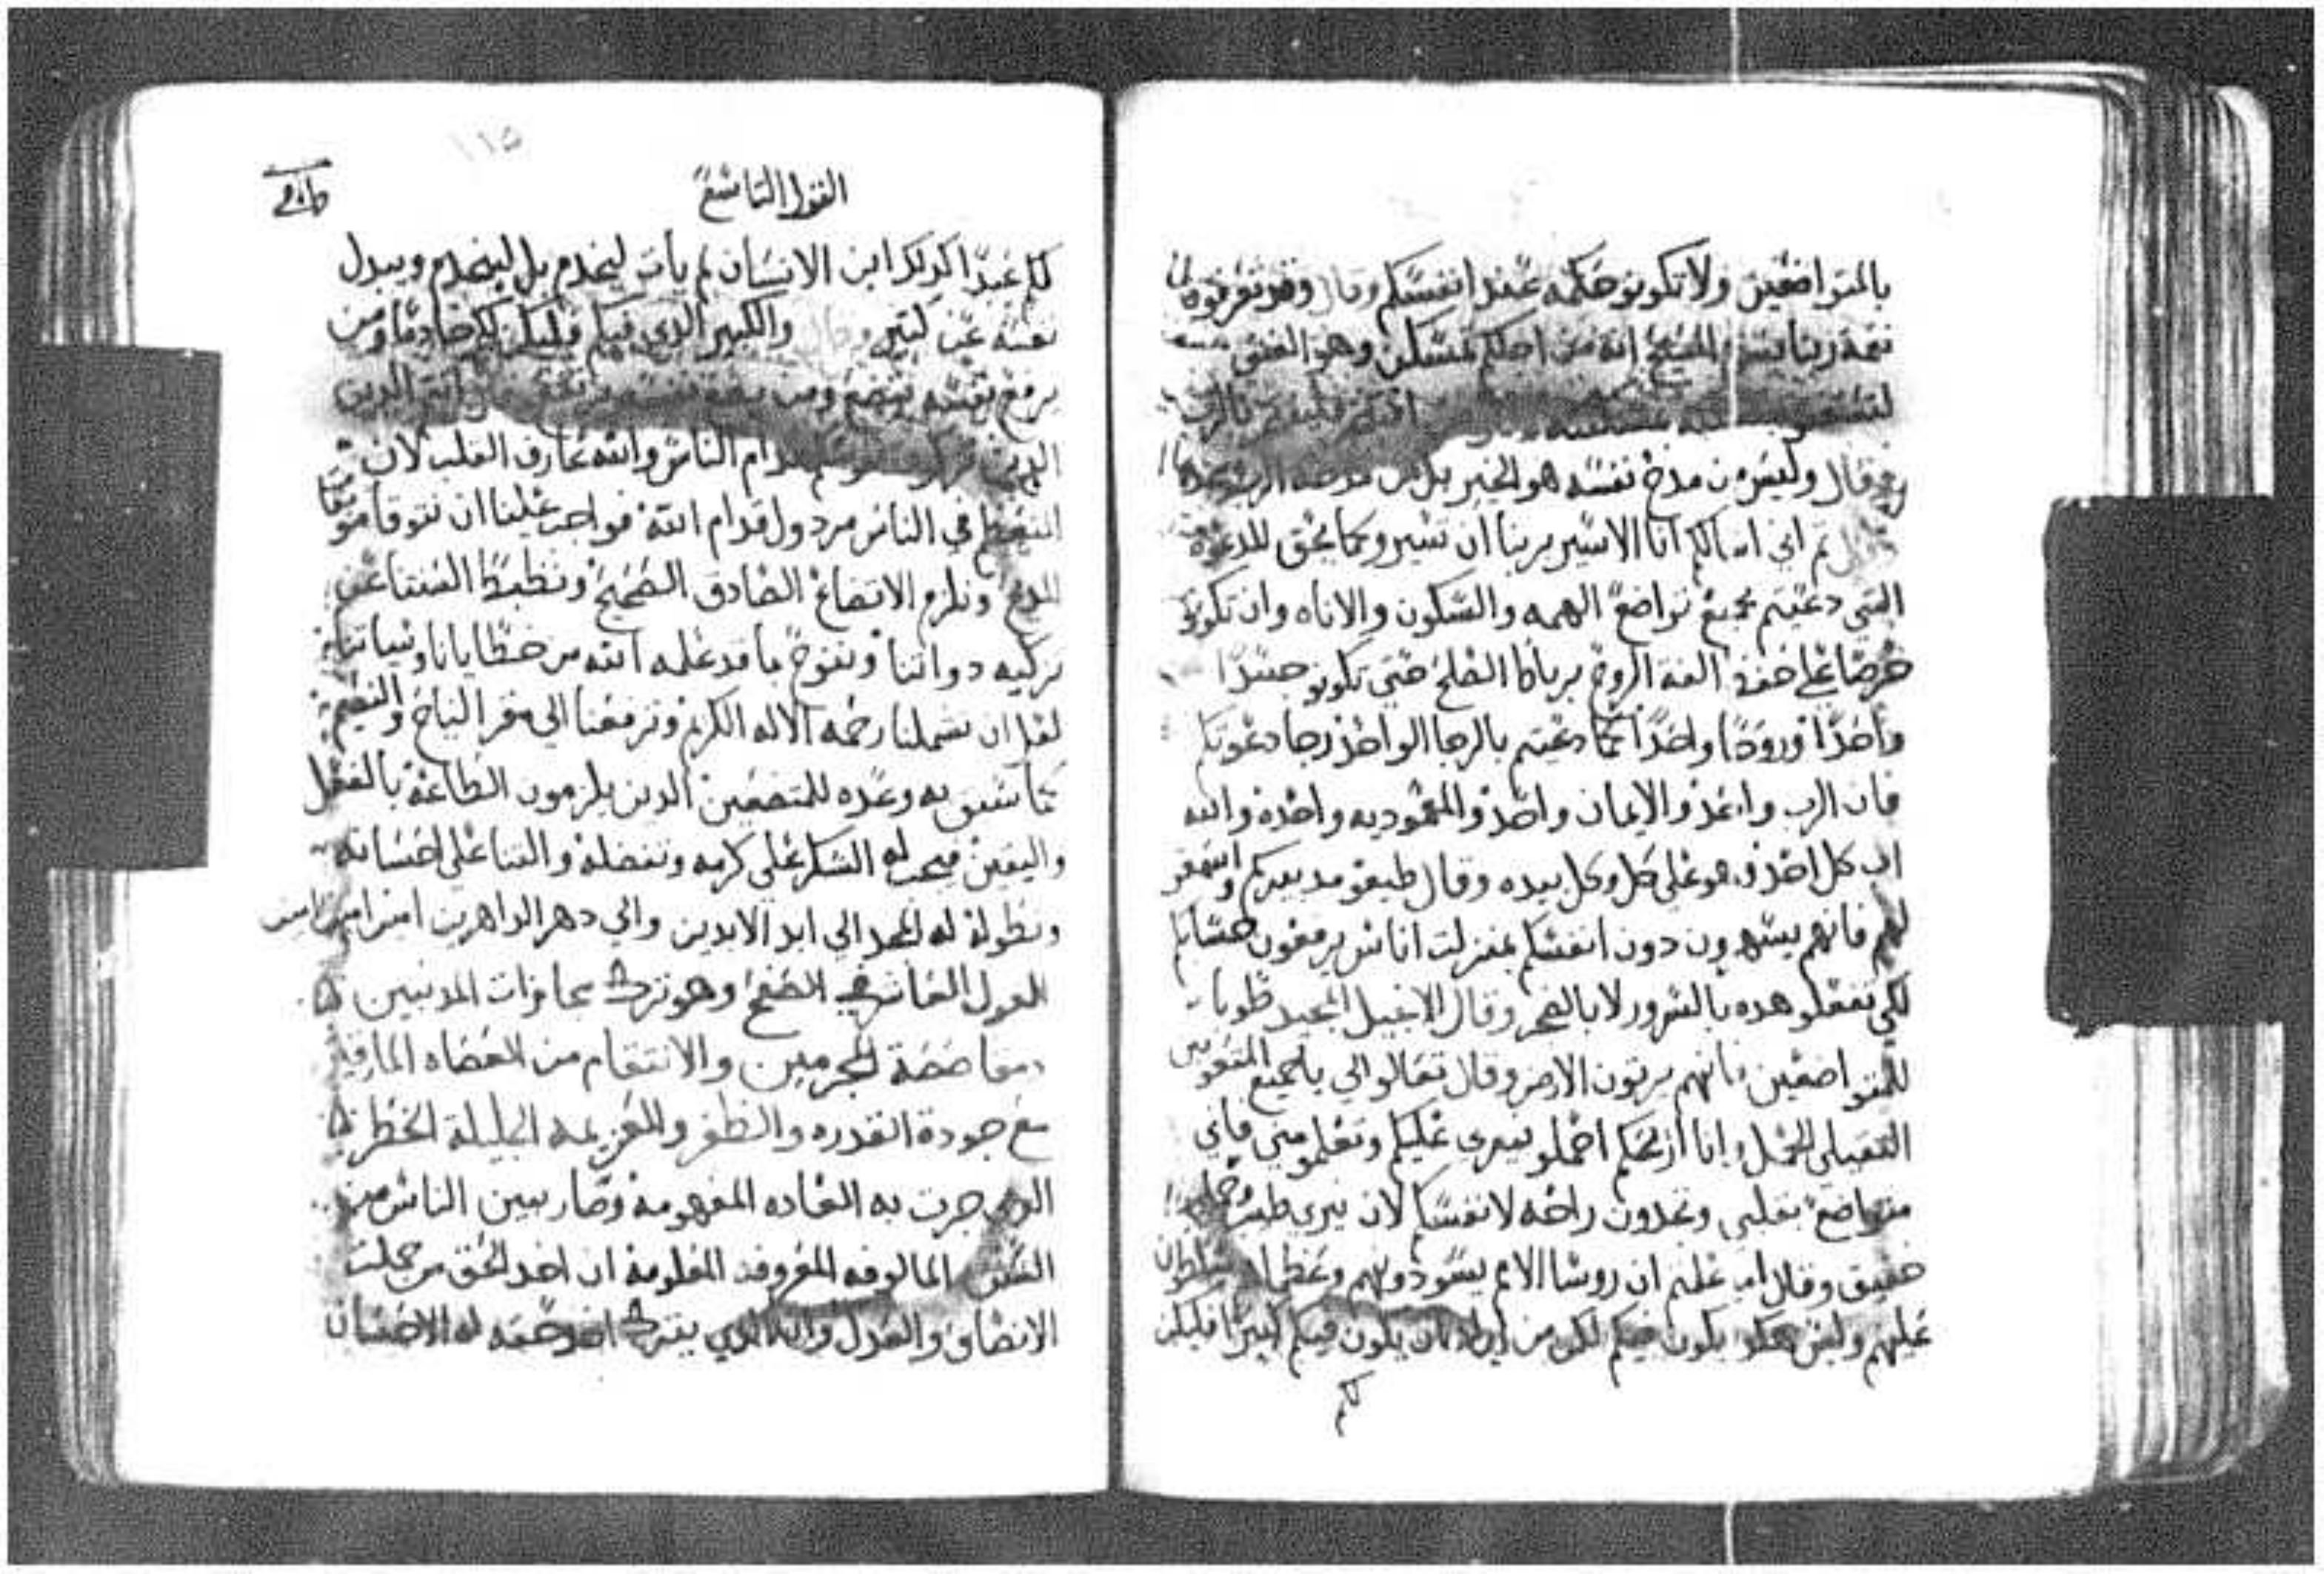 بالمتواضعين ولا تكونو حكمه عند انفسكم وقال وقد تعرفون
نعمة ربنا يسوع المسيح انه من اجلكم تمسكن وهو الغني
افتخر فليفتخر بالرب
وقال وليس من مدح نفسه هو الخبير بل من مدحه الرب
ثم اني اسالكم انا الاسير بربنا ان تسيرو كما يحق للدعوه
التي دعيتم بجميع تواضع الهمه والسكون والاناه وان تكونو
حرصا على حفظ الفة الروح برباط الصلح حتي تكونو جسدا
واحدا وروحا واحدا كما دعيتم بالرجا الواحد رجا دعوتكم
فان الرب واحد والايمان واحد والمعموديه واحده والله
اب كل احد وهو على كل وكل بيده وقال طيعو مدبريكم واسمعو
لهم فانهم يسهرون دون انفسكم بمنزلت اناس يرفعون حسابكم
لكي تفعلو هده بالسرور لا بالضجر وقال الانجيل المجيد طوبا
للمتواضعين فانهم يرتون الارض وقال تعالو الي يا جميع المتعوبين
التقيلي الحمل وانا اريحكم احملو نيري عليكم وتعلمو مني فاني
متواضع بقلبي وتجدون راحه لانفسكم لان نيري طيب وحملي
خفيف وقال اما علمتم ان روسا الامم يسودونهم وعظماهم يتسلطون
عليهم وليس هكدا يكون فيكم لكن من اراد ان يكون فيكم كبيرا فليكن
لكم
القول التاسع
١١٥
لكم عبدا كدلك ابن الانسان لم يات ليخدم بل ليخدم ويبدل
نفسه عن كتير وقال والكبير الدي فيكم فليكن لكم خادما ومن
يرفع نفسه يتضع ومن يضع نفسه يرتفع انتم الدين
قدام الناس والله عارف القلب لان
المتعظم في الناس مردول قدام الله فواجب علينا ان نتوقا
المدح ونلزم الاتضاع الصادق الصحيح ونظبط السنتنا عن
تزكيه دواتنا ونبوح بما قد علمه الله من خطايانا وسياتنا
لعل ان تشملنا رحمه الاله الكريم وترفعنا الي مقر النياح والنعيم
كما سبق به وعده للمتضعين الدين يلزمون الطاعة بالفعل
واليقين فيجب له الشكر على كرمه وتفضله والتنا على احسانه
وبطوله له المجد الي ابد الابدين والي دهر الداهرين امين امين امين
القول العاشر في الصفح وهو ترك مجازات المدنبين
ومقاصصة المجرمين والانتقام من العصاه المارقين
مع جودة القدره والظفر والعزيمه الجليلة الخطر
الدي جرت به العاده المفهومة وصار بين الناس من
السنن المالوفه المعروفه المعلومة ان اخد الحق من جملت
الانصاف والعدل وان الدي يترك اخد حقه له الاحسان